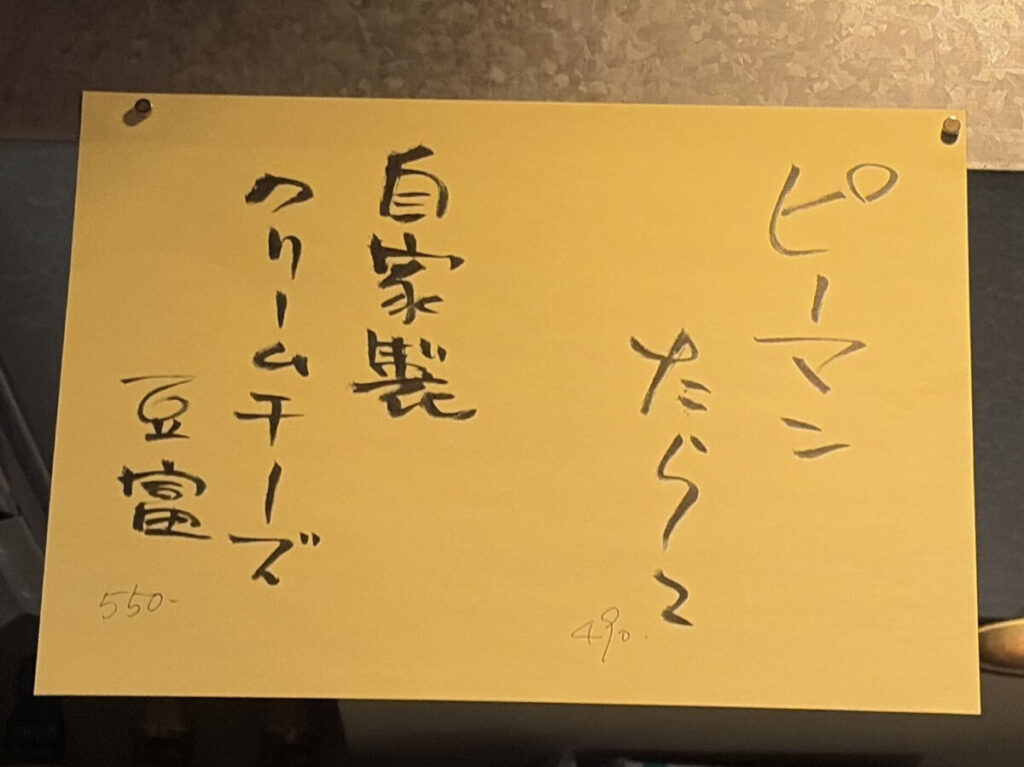 ピーマン
たらこ
490.
自家製
クリームチーズ
豆富
550-